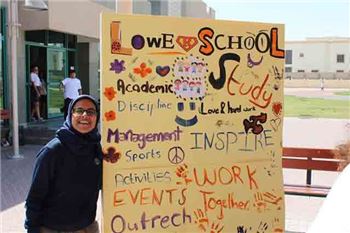 LOWE SCHOOL
Study
Academic
Discipline
Love & Hard work
Management
INSPIRE
Sports
Activities
WORK
EVENTS Together
Outreach